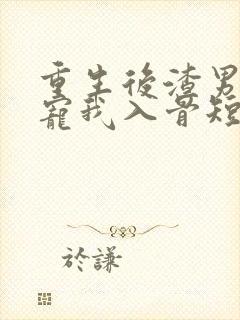 重生後渣男
寵我入骨短
於謙